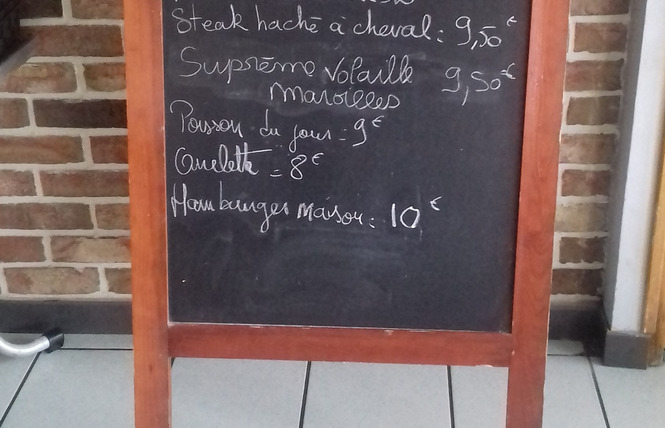 Steak haché à cheval : 9,50€
Suprême Volaille 9,50€
Maroilles
Poisson du jour = 9€
Omelette = 8€
Hamburger maison : 10€